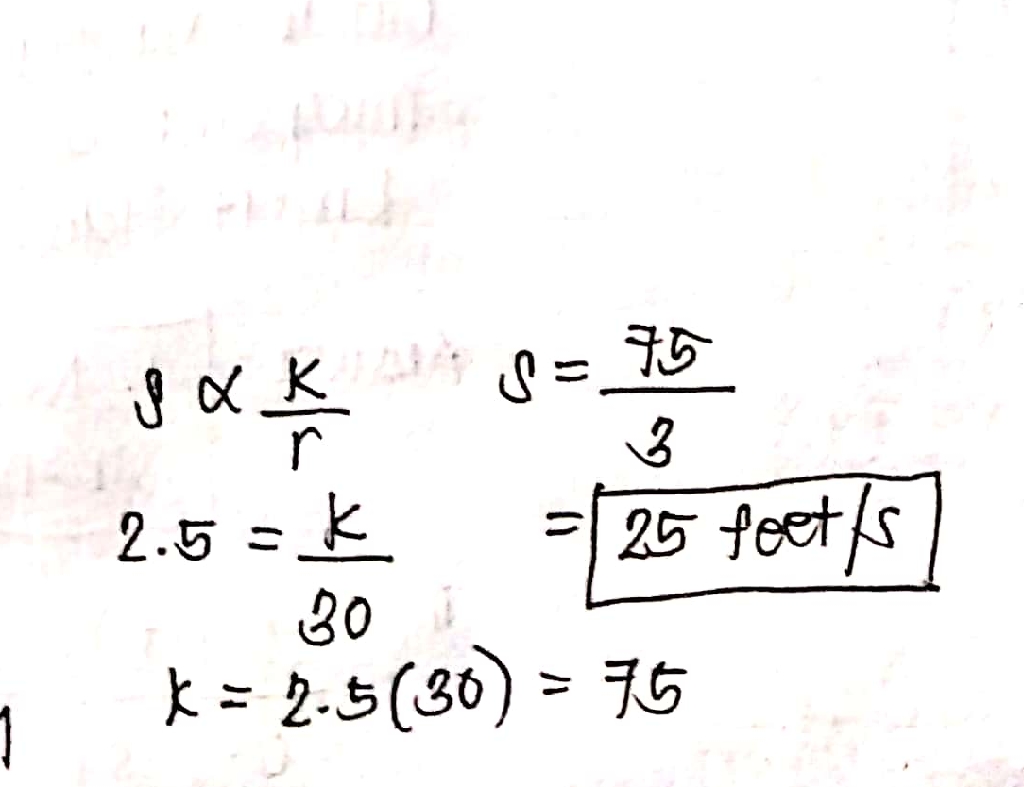 s ∝ k/r
2.5 = k/30
k = 2.5(30) = 75
s = 75/3
= 25 feet/s